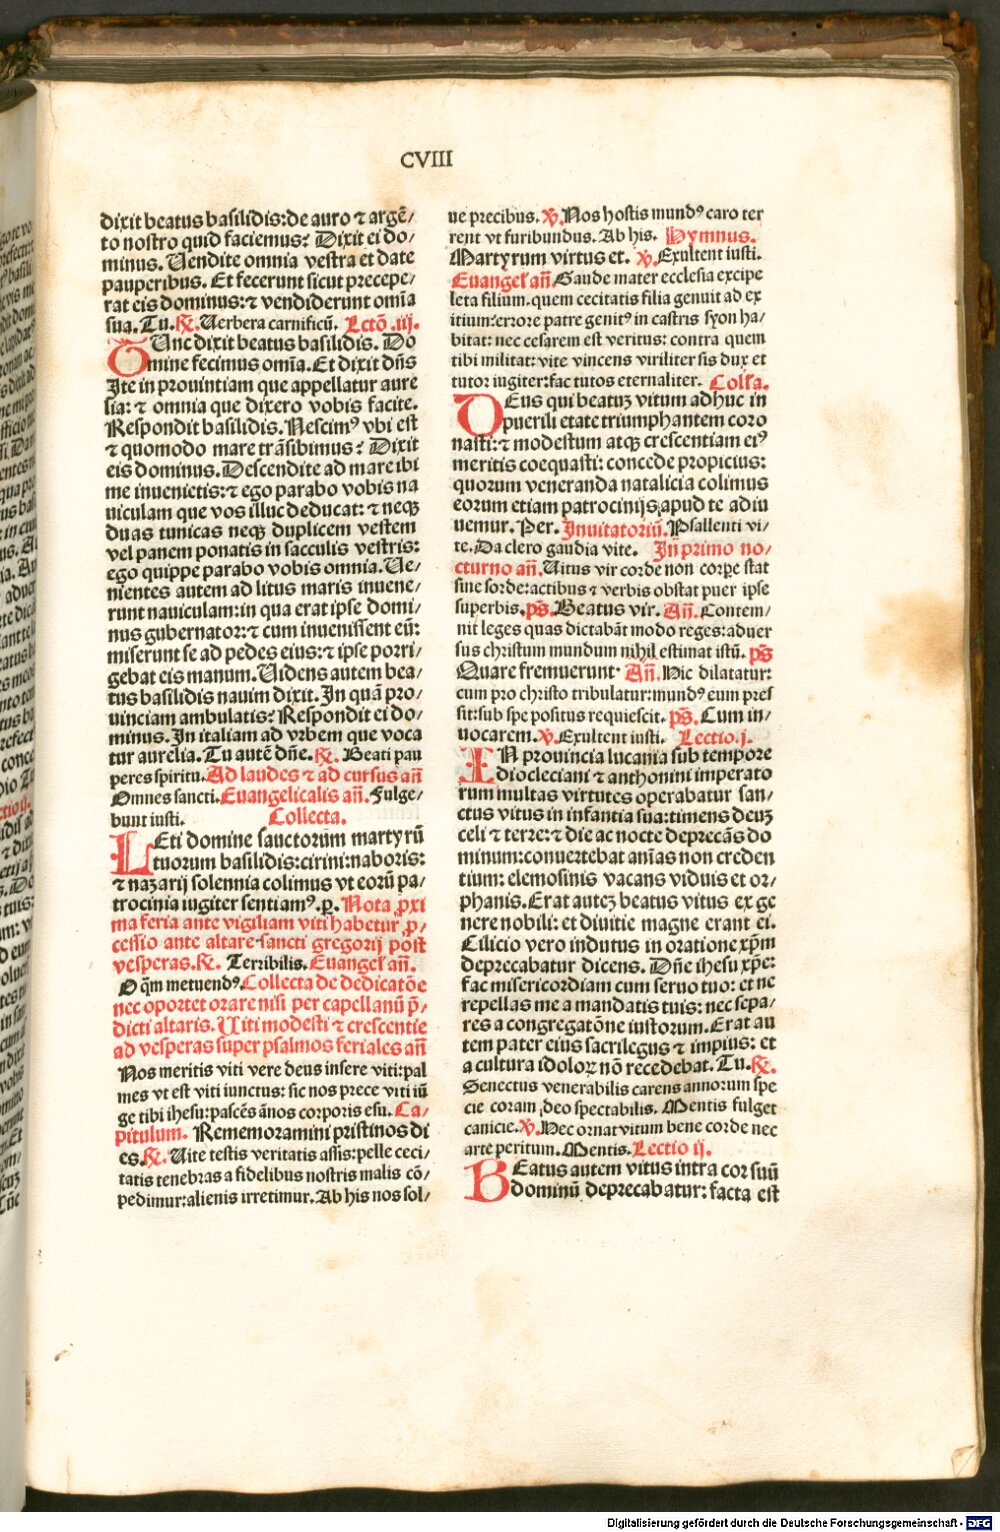 CVIII
dixit beatus basilidis:de auro ⁊ argē/
to nostro quid faciemus? Dixit ei do/
minus. Uendite omnia vestra et date
pauperibus. Et fecerunt sicut precepe/
rat eis dominus:⁊ vendiderunt omīa
sua. Tu. ℟. Uerbera carnificū. Lctō .iij.
TUnc dixit beatus basilidis. Do
mine fecimus omīa. Et dixit dn̄s
Ite in prouintiam que appellatur aure
lia: ⁊ omnia que dixero vobis facite.
Respondit basilidis. Nescimꝰ vbi est
⁊ quomodo mare trāsibimus? Dixit
eis dominus. Descendite ad mare ibi
me inuenietis:⁊ ego parabo vobis na
uiculam que vos illuc deducat: ⁊ neqꝫ
duas tunicas neqꝫ duplicem vestem
vel panem ponatis in sacculis vestris:
ego quippe parabo vobis omnia. Ue/
nientes autem ad litus maris inuene/
runt nauiculam:in qua erat ipse domi/
nus gubernator:⁊ cum inuenissent eū:
miserunt se ad pedes eius:⁊ ipse porri/
gebat eis manum. Uidens autem bea/
tus basilidis nauim dixit. In quā pro/
uinciam ambulatis? Respondit ei do/
minus. In italiam ad vrbem que voca
tur aurelia. Tu autē dn̄e. ℟. Beati pau
peres spiritu. Ad laudes ⁊ ad cursus an̄
Omnes sancti. Euangelicalis an̄. Fulge/
bunt iusti. Collecta.
LEti domine sanctorum martyrū
tuorum basilidis:cirini:naboris:
⁊ nazarij solennia colimus vt eorū pa/
trocinia iugiter sentiamꝰ. ꝑ. Nota ꝓxi
ma feria ante vigiliam viti habetur ꝓ/
cessio ante altare sancti gregorij post
vesperas. ℟. Terribilis. Euangeł an̄.
O q̄m metuendꝰ. Collecta de dedicatōe
nec oportet orare nisi per capellanū p̄/
dicti altaris. Uiti modesti ⁊ crescentie
ad vesperas super psalmos feriales an̄
Nos meritis viti vere deus insere viti:pal
mes vt est viti iunctus: sic nos prece viti iū
ge tibi ihesu:pascēs ānos corporis esu. Ca/
pitulum. Rememoramini pristinos di
es. ℟. Uite testis veritatis assis:pelle ceci/
tatis tenebras a fidelibus nostris malis cō/
pedimur:alienis irretimur. Ab his nos sol/
ue precibus. ℣. Nos hostis mundꝰ caro ter
rent vt furibundus. Ab his. Hymnus.
Martyrum virtus et. ℣. Exultent iusti.
Euangeł an̄. Gaude mater ecclesia excipe
leta filium.quem cecitatis filia genuit ad ex
itium:errore patre genitꝰ in castris syon ha/
bitat: nec cesarem est veritus: contra quem
tibi militat: vite vincens viriliter sis dux et
tutor iugiter:fac tutos eternaliter. Colła.
DEus qui beatuꝫ vitum adhuc in
puerili etate triumphantem coro
nasti:⁊ modestum atqꝫ crescentiam eiꝰ
meritis coequasti: concede propicius:
quorum veneranda natalicia colimus
eorum etiam patrocinijs apud te adiu
uemur. Per. Inuitatoriū. Psallenti vi/
te. Da clero gaudia vite. In primo no/
cturno an̄. Uitus vir corde non corꝑe stat
sine sorde:actibus ⁊ verbis obstat puer ipse
superbis. ps̄. Beatus vir. An̄. Contem/
nit leges quas dictabāt modo reges:aduer
sus christum mundum nihil estimat istū. ps̄
Quare fremuerunt. An̄. Hic dilatatur:
cum pro christo tribulatur:mundꝰ eum pres
sit:sub spe positus requiescit. ps̄. Cum in/
uocarem. ℣. Exultent iusti. Lectio.j.
IN prouincia lucania sub tempore
diocleciani ⁊ anthonini imperato
rum multas virtutes operabatur san/
ctus vitus in infantia sua:timens deuꝫ
celi ⁊ terre:⁊ die ac nocte deprecās do
minum:conuertebat an̄ias non creden
tium: elemosinis vacans viduis et or/
phanis. Erat auteꝫ beatus vitus ex ge
nere nobili: et diuitie magne erant ei.
Cilicio vero indutus in oratione xp̄m
deprecabatur dicens. Dn̄e ihesu xp̄e:
fac misericordiam cum seruo tuo: et ne
repellas me a mandatis tuis: nec sepa/
res a congregatōne iustorum. Erat au
tem pater eius sacrilegus ⁊ impius: et
a cultura idoloꝝ nō recedebat. Tu. ℟.
Senectus venerabilis carens annorum spe
cie coram deo spectabilis. Mentis fulget
canicie. ℣. Nec ornat vitum bene corde nec
arte peritum. Mentis. Lectio ij.
BEatus autem vitus intra cor suū
dominū deprecabatur: facta est
Digitalisierung gefördert durch die Deutsche Forschungsgemeinschaft - DFG